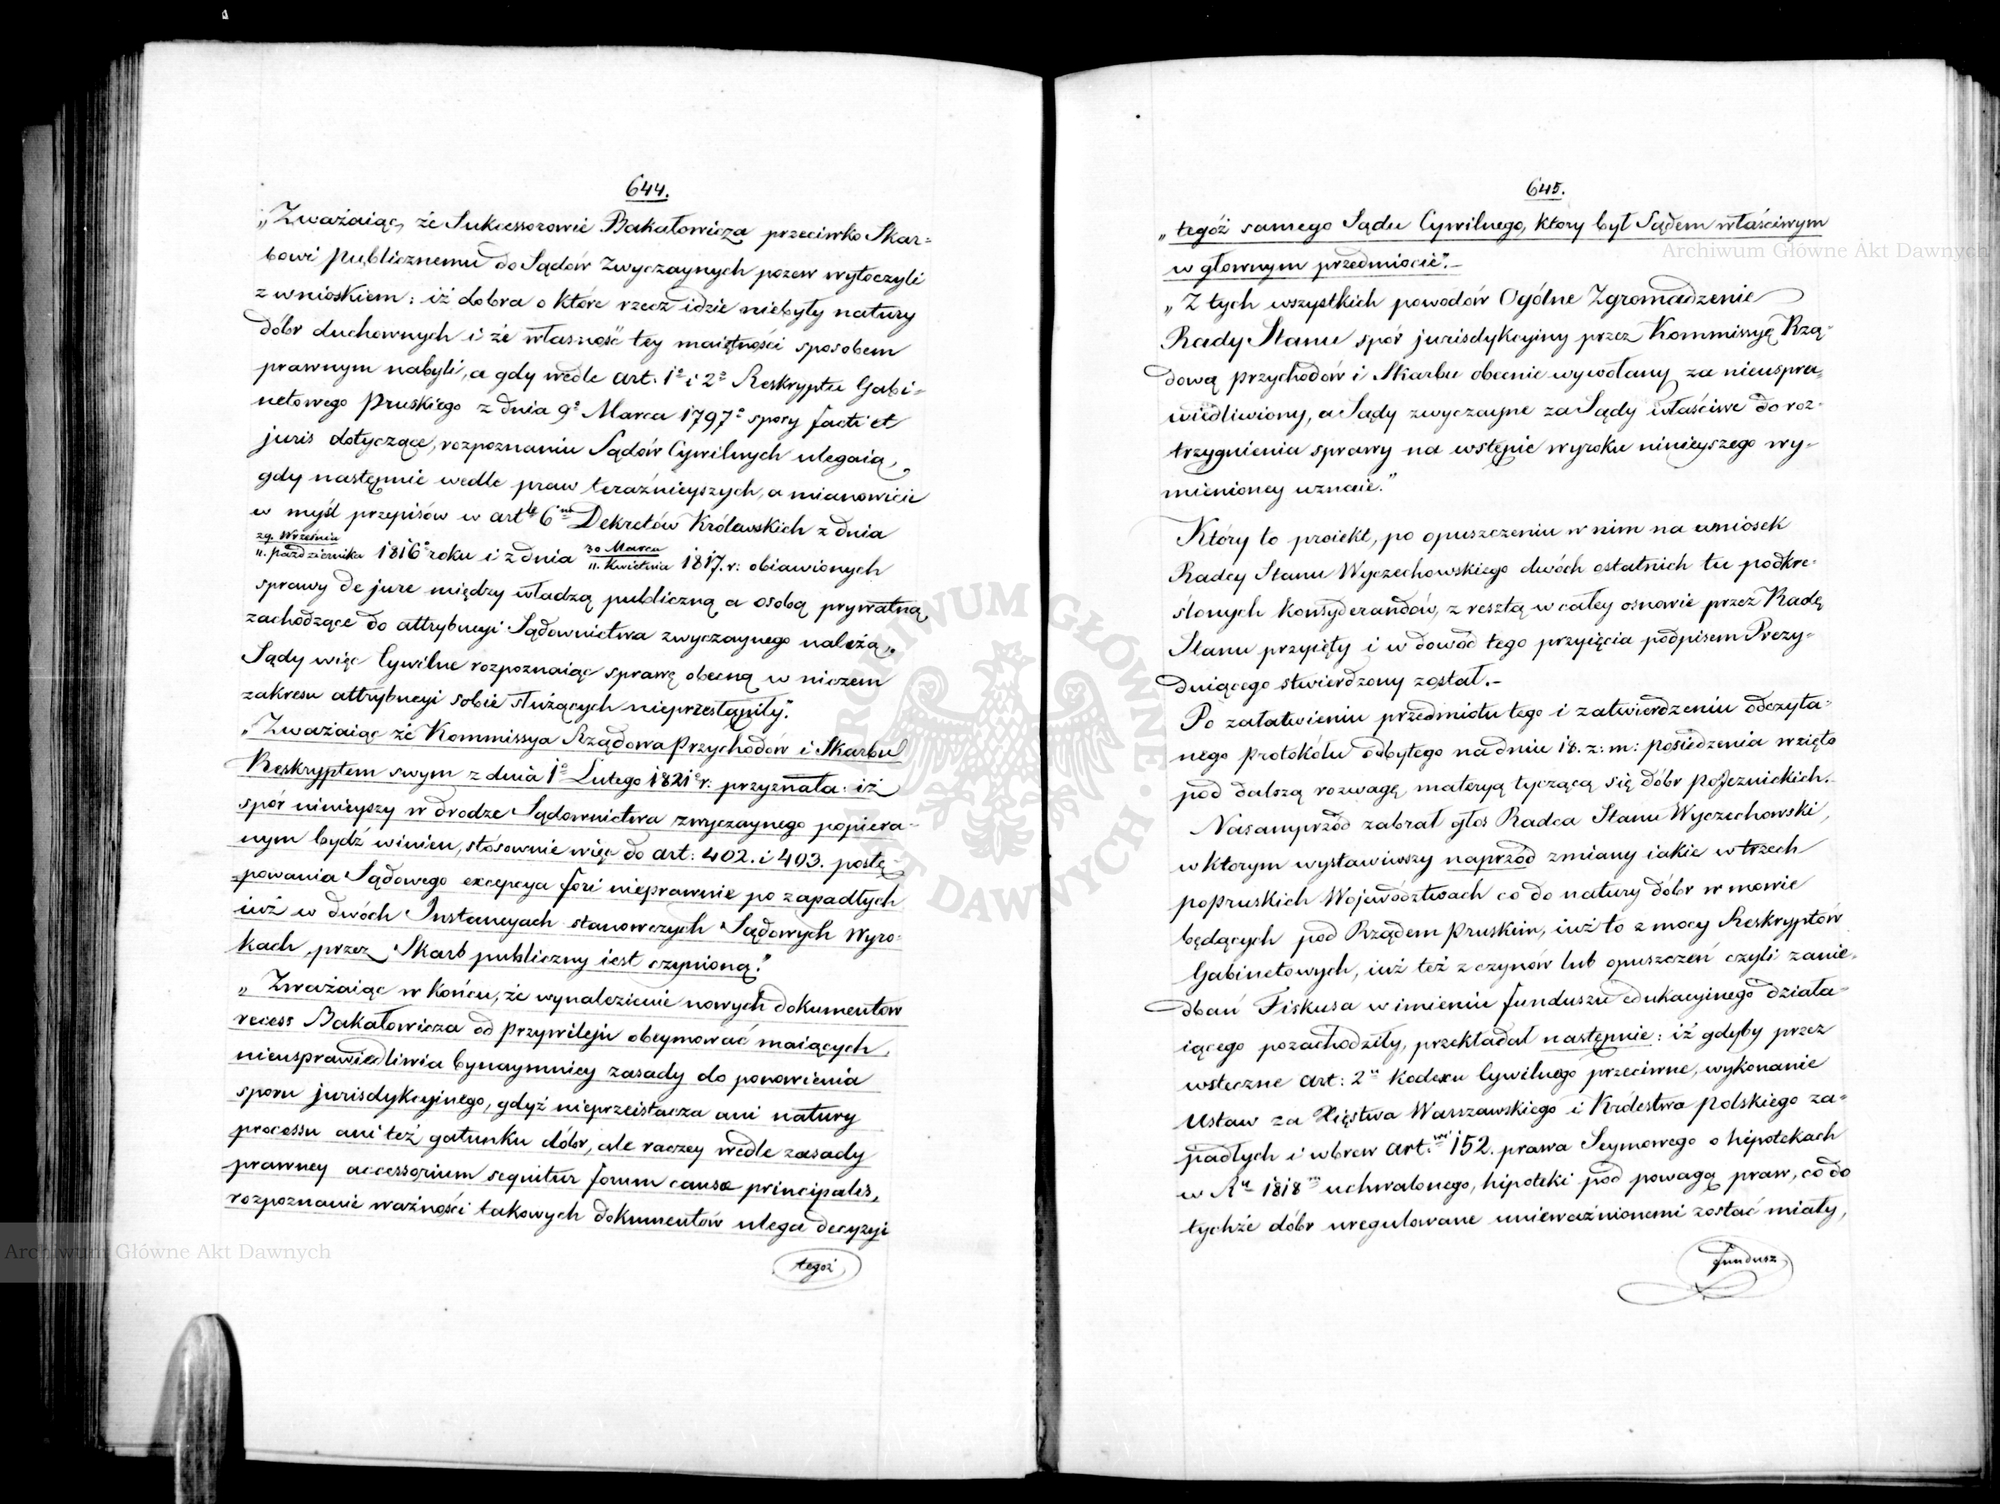 644.
„Zważaiąc, że Sukcessorowie Bakałowicza przeciwko Skar-
bowi publicznemu do Sądów zwyczaynych pozew wytoczyli
z wnioskiem: iż dobra o które rzecz idzie niebyły natury
dóbr duchownych i że własność tey maiętności sposobem
prawnym nabyli, a gdy wedle art. 1° i 2° Reskryptu Gabi-
netowego Pruskiego z dnia 9° Marca 1797° spory facti et
juris dotyczące, rozpoznaniu Sądów Cywilnych ulegaią,
gdy następnie wedle praw teraźnieyszych, a mianowicie
w myśl przepisów w art. 6 Dekretów Królewskich z dnia
29. Września / 11. Października 1816° roku i z dnia 30 Marca / 11. Kwietnia 1817. r: obiawionych
sprawy de jure między władzą publiczną a osobą prywatną
zachodzące do attrybucyi Sądownictwa zwyczaynego należą,
Sądy więc Cywilne rozpoznaiąc sprawę obecną w niczem
zakresu attrybucyi sobie służących nieprzestąpiły."
„Zważaiąc że Kommissya Rządowa Przychodów i Skarbu
Reskryptem swym z dnia 1° Lutego 1821° r: przyznała: iż
spór ninieyszy w drodze Sądownictwa zwyczaynego popiera-
nym bydź winien, stósownie więc do art: 402. i 403. postę-
powania Sądowego excepcya fori nieprawnie po zapadłych
iuż w dwóch Instancyach stanowczych Sądowych Wyro-
kach, przez Skarb publiczny iest czynioną."
„Zważaiąc w końcu, że wynalezienie nowych dokumentów
recess Bakałowicza od przywileju obeymować maiących,
nieusprawiedliwia bynaymniey zasady do ponowienia
sporu jurisdykcyinego, gdyż nieprzeistacza ani natury
processu ani też gatunku dóbr, ale raczey wedle zasady
prawney accessorium sequitur forum causæ principalis,
rozpoznanie ważności takowych dokumentów ulega decyzyi
tegoż
645.
„tegóż samego Sądu Cywilnego, który był Sądem właściwym
w głownym przedmiocie".–
„Z tych wszystkich powodów Ogólne Zgromadzenie
Rady Stanu spór jurisdykcyiny przez Kommissyę Rzą-
dową Przychodów i Skarbu obecnie wywołany za nieuspra-
wiedliwiony, a Sądy zwyczayne za Sądy właściwe do roz-
trzygnienia sprawy na wstępie wyroku ninieyszego wy-
mienioney uznaie."
Który to proiekt, po opuszczeniu w nim na wniosek
Radcy Stanu Wyczechowskiego dwóch ostatnich tu podkre-
ślonych Konsyderandów, z resztą w całey osnowie przez Radę
Stanu przyięty i w dowód tego przyięcia podpisem Prezy-
duiącego stwierdzony został.–
Po załatwieniu przedmiotu tego i zatwierdzeniu odczyta-
nego protokółu odbytego na dniu 18. z: m: posiedzenia wzięto
pod dalszą rozwagę materyą tyczącą się dóbr pojeznickich.–
Nasamprzód zabrał głos Radca Stanu Wyczechowski,
w którym wystawiwszy naprzód zmiany iakie w trzech
popruskich Województwach co do natury dóbr w mowie
będących pod Rządem Pruskim, iuż to z mocy Reskryptów
Gabinetowych, iuż też z czynów lub opuszczeń czyli zanie-
dbań Fiskusa w imieniu funduszu edukacyinego działa-
iącego pozachodziły, przekładał następnie: iż gdyby przez
wsteczne art: 2 Kodexu Cywilnego przeciwne, wykonanie
Ustaw za Xięstwa Warszawskiego i Królestwa Polskiego za-
padłych i wbrew art. 152. prawa Seymowego o hipotekach
w R. 1818 uchwalonego, hipoteki pod powagą praw, co do
tychże dóbr uregulowane unieważnionemi zostać miały,
fundusz
Archiwum Główne Akt Dawnych
Archiwum Główne Akt Dawnych
ARCHIWUM GŁÓWNE AKT DAWNYCH